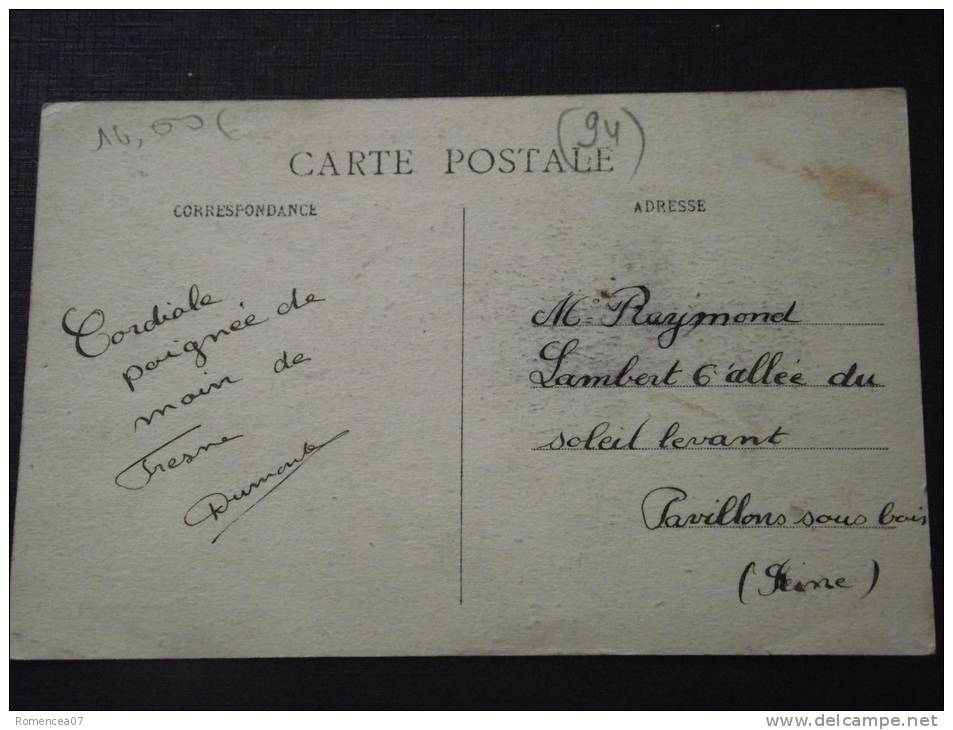 16,00 €
(94)
CARTE POSTALE
CORRESPONDANCE
Cordiale
poignée de
main de
Fresne
Dumonte
ADRESSE
Mr Raymond
Lambert 6 allée du
soleil levant
Pavillons sous bois
(Seine)
Romencea07
www.delcampe.net